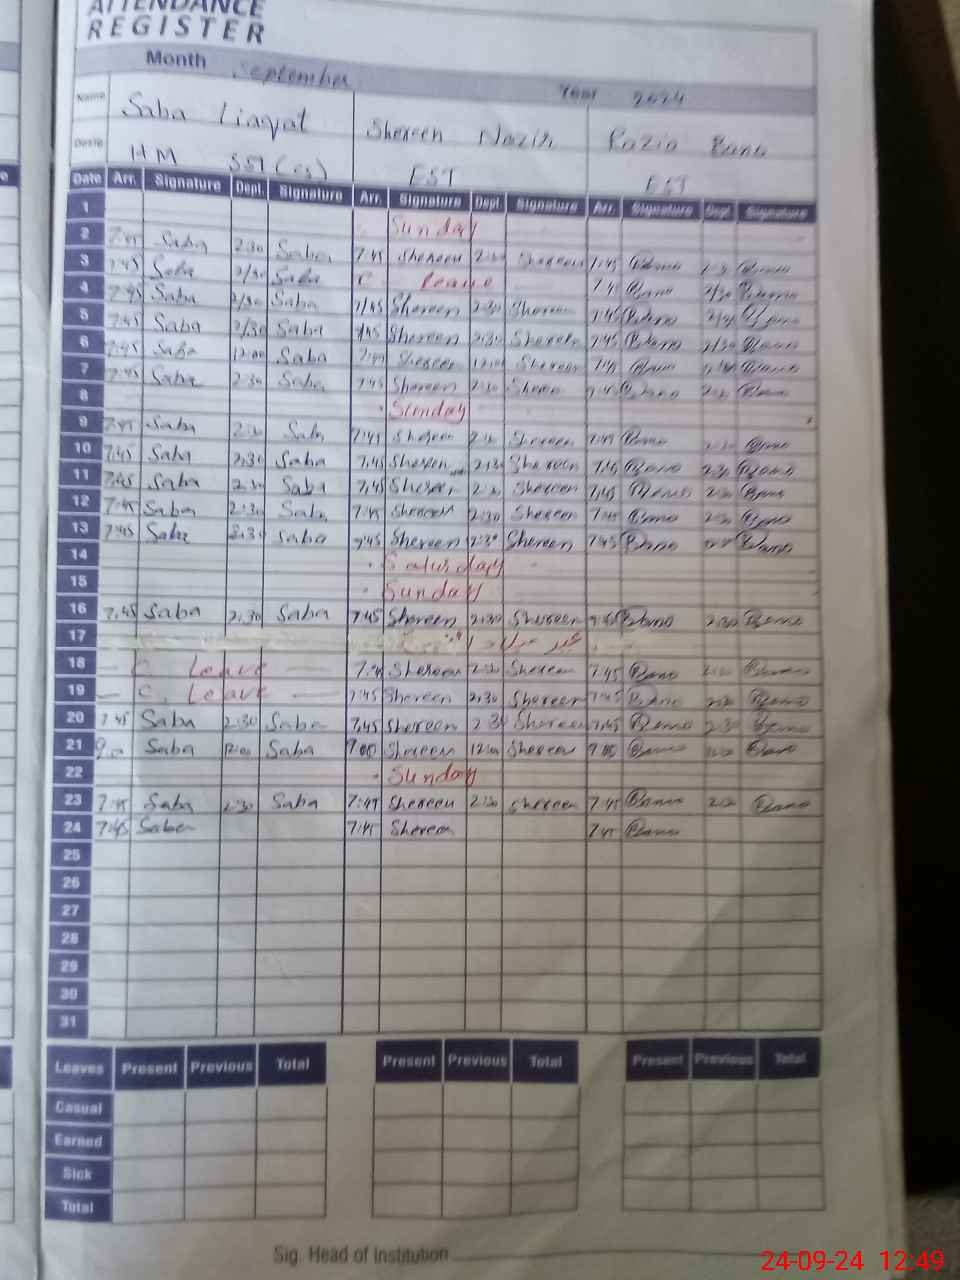 ATTENDANCE
REGISTER
Month September Year 2024
Name Saba Liaqat Shereen Nazir Razia Bano
HM SST (cs) EST EST
Date Arr. Signature Dept. Signature Arr. Signature Dept. Signature Arr. Signature Dept. Signature
1 Sunday
2 7:45 Saba 2:30 Saba 7:45 Shereen Shereen 7:45 Bano Bano
3 7:45 Saba 2/30 Saba C Leave 7:45 Bano 2/30 Bano
4 7:45 Saba 2/30 Saba 7/45 Shereen 2:30 Shereen 7:45 Bano Bano
5 7:45 Saba 2/30 Saba 7:45 Shereen 2:30 Shereen 7:45 Bano 2/30 Bano
6 7:45 Saba 12:00 Saba Shereen 12:00 Shereen 7:45 Bano Bano
7 7:45 Saba 2:30 Saba 7:45 Shereen 2:30 Shereen Bano Bano
8 Sunday
9 7:45 Saba 2:30 Saba 7:45 Shereen Shereen 7:45 Bano 2:30 Bano
10 7:45 Saba 2:30 Saba 7:45 Shereen 2:30 Shereen 7:45 Bano 2:30 Bano
11 7:45 Saba 2:30 Saba 7:45 Shereen Shereen 7:45 Bano 2:30 Bano
12 7:45 Saba 2:30 Saba 7:45 Shereen 2:30 Shereen 7:45 Bano 2:30 Bano
13 7:45 Saba 2:30 Saba 7:45 Shereen 2:30 Shereen 7:45 Bano Bano
14 Saturday
15 Sunday
16 7:45 Saba 2:30 Saba 7:45 Shereen 2:30 Shereen 7:45 Bano 2:30 Bano
17
18 C. Leave 7:45 Shereen 2:30 Shereen 7:45 Bano Bano
19 C. Leave 7:45 Shereen 2:30 Shereen 7:45 Bano Bano
20 7:45 Saba 2:30 Saba 7:45 Shereen 2:30 Shereen 7:45 Bano 2:30 Bano
21 Saba 12:00 Saba Shereen 12:00 Shereen Bano Bano
22 Sunday
23 7:45 Saba 2:30 Saba 7:45 Shereen 2:30 Shereen 7:45 Bano Bano
24 7:45 Saba 7:45 Shereen 7:45 Bano
25
26
27
28
29
30
31
Leaves Present Previous Total Present Previous Total Present Previous Total
Casual
Earned
Sick
Total
Sig. Head of Institution
24-09-24 12:49